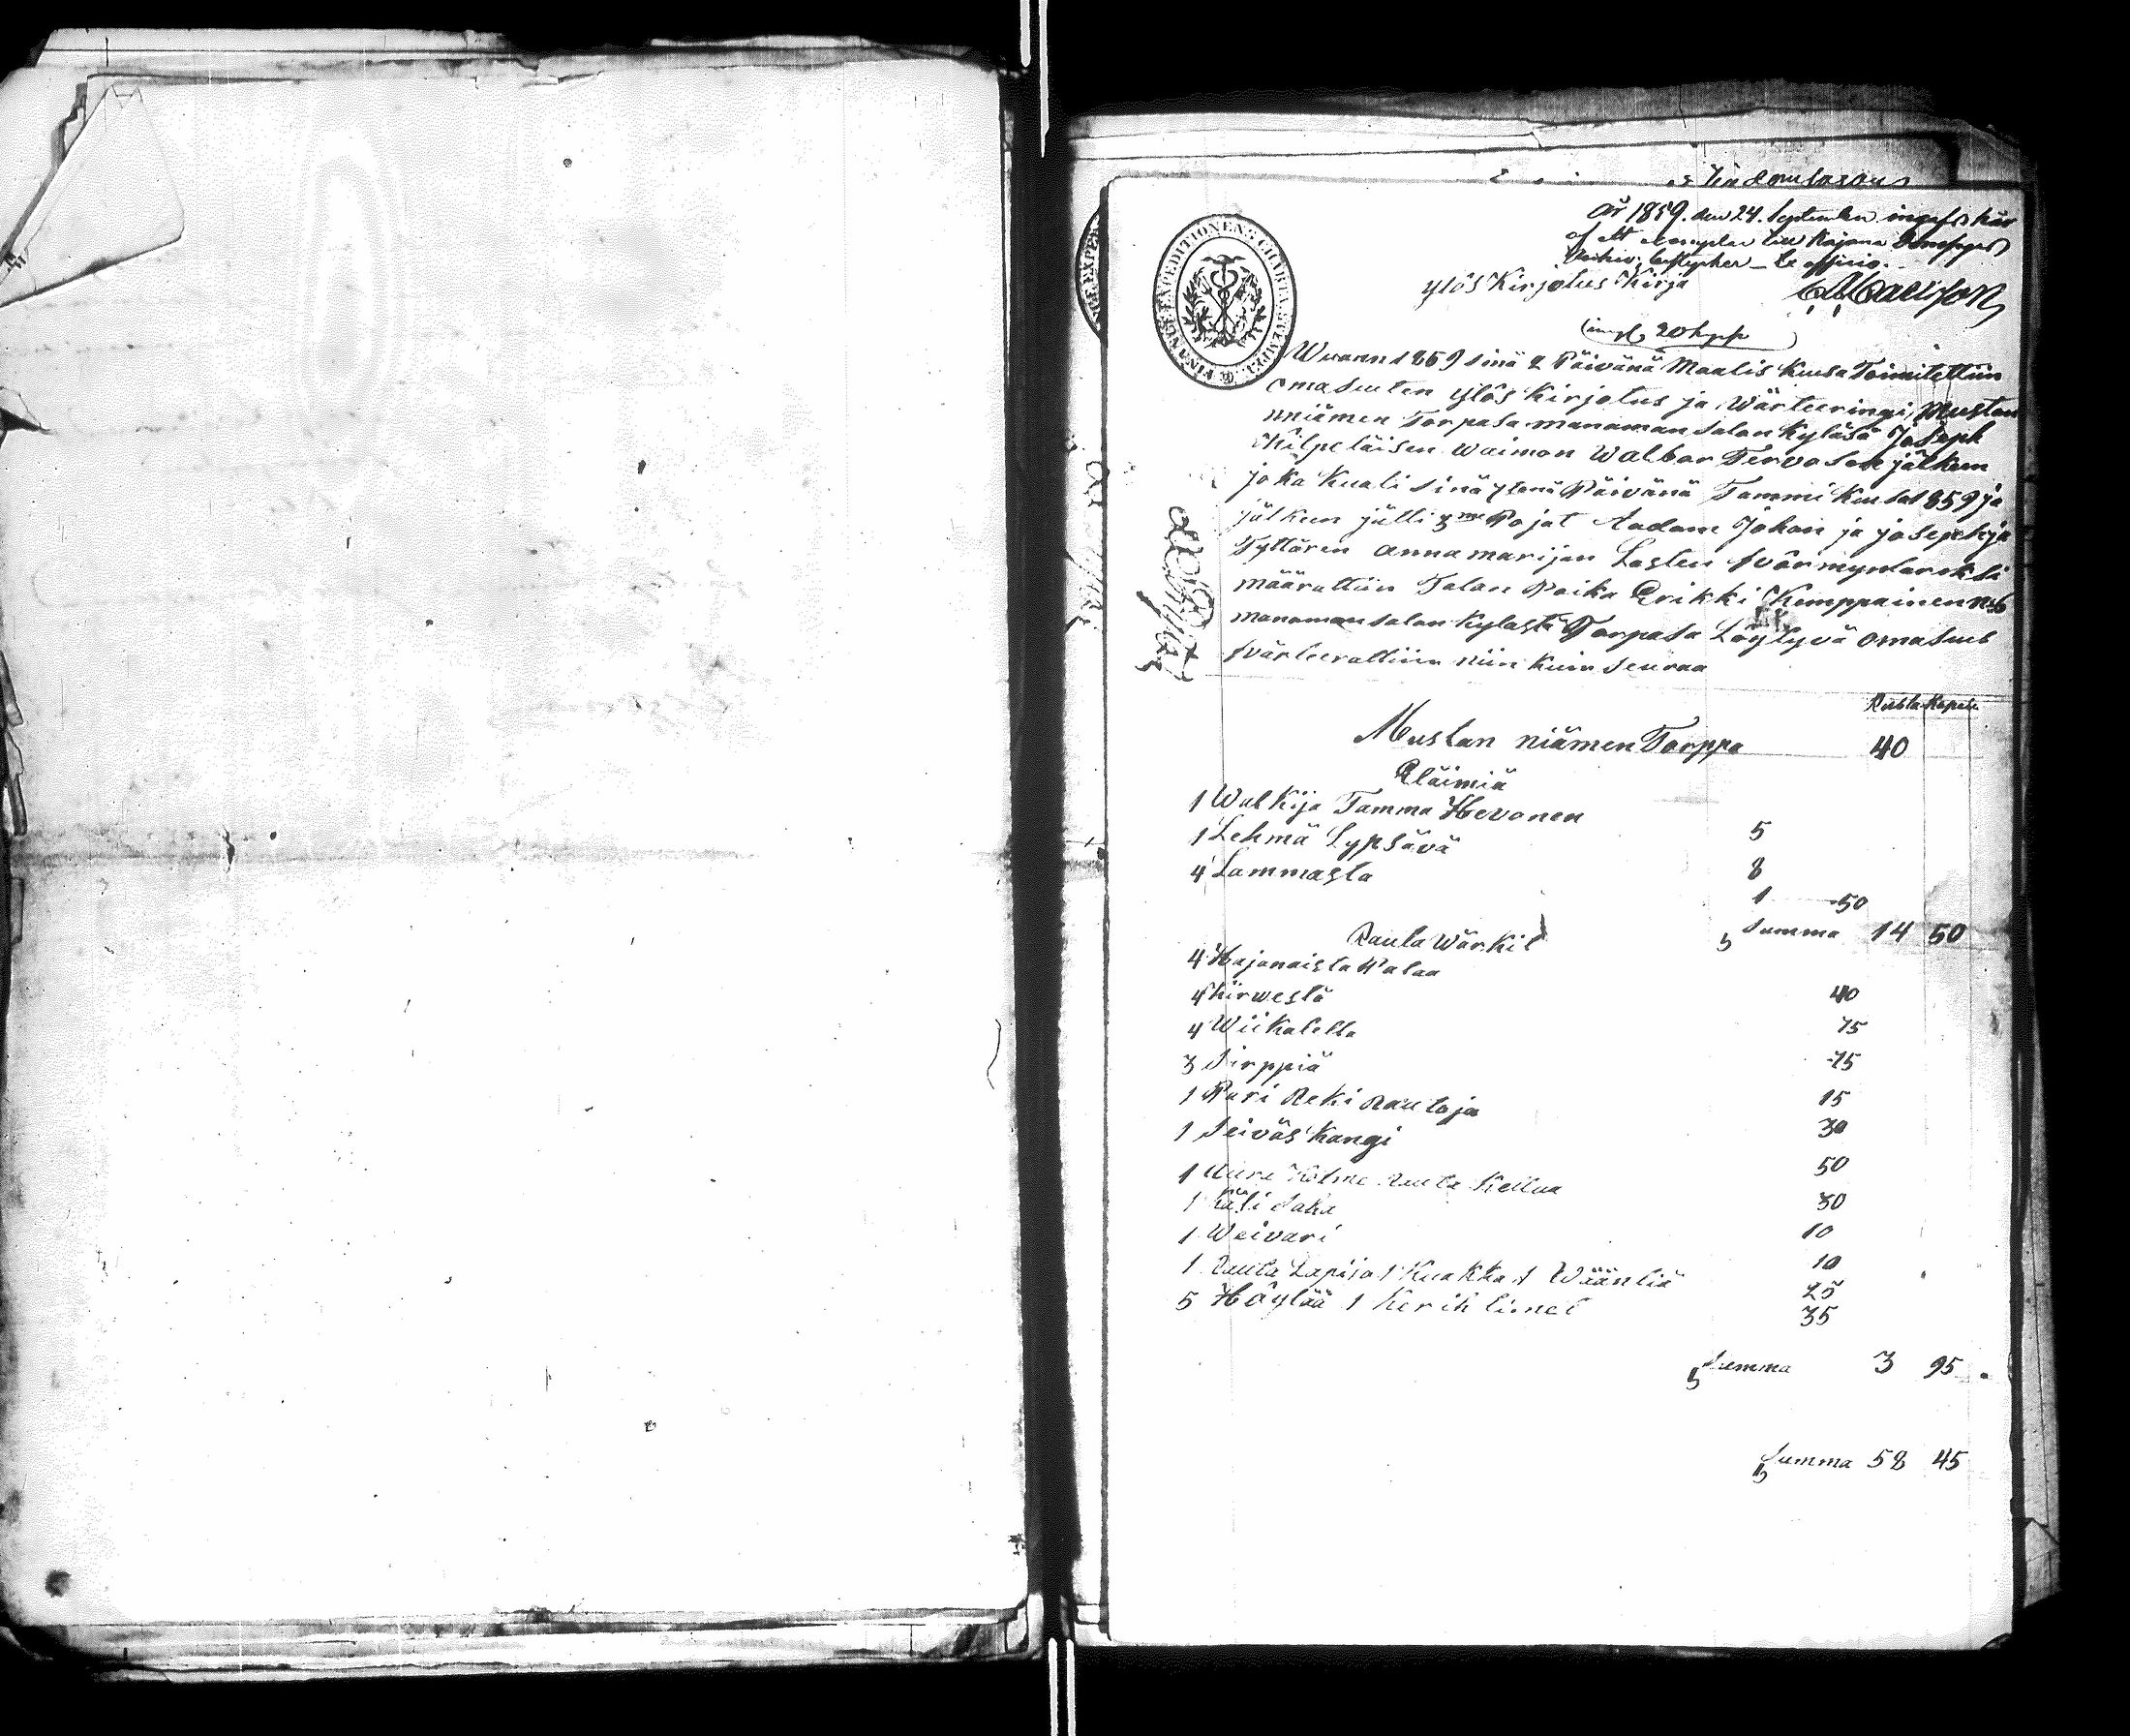 År 1859. den 24. September ingafs här
af ett exemplar till Kajana Domsagas
Archiv; bestyrker _ Ex officio.
ylös Kirjotus Kirja
20 kop
FINANCE EXPEDITIONENS CHARTÆ STEMPEL
Wuonna 1859 sinä 2 Päivänä Maalis Kuusa Toimitettiin
omasuuten ylös Kirjotus ja Wärteeringi, Mustan
niämen Torpasa manamansalon Kyläsä Joseph
Kilpeläisen Waimon Walbor Tervosen jälkeen
joka Kuali sinä 7tenä Päivänä Tammi Kuusa 1859 ja
jälkeen jätti 3me Pojat Aadam Johan ja josepehja
Tyttären annamarijan Lasten fvörmyndäreksi
määrättiin Talon Poika Erikki Kemppainen No6
manamansalon Kylästä Torpasa Löytyvä omasuus
fvärteerattiin niin Kuin seuraa
Rubla Kopek
Mustan niämen Torppa 40
Eläimiä
1 Walkija Tamma Hevonen 5
1 Lehmä Lypsävä 8
4 Lammasta 1 50
Summa 14 50
Rauta Wärkit
4 Hajanaista Pataa 40
4 Kirwestä 75
4 Wiikatetta 75
3 Sirppiä 15
1 Pari Reki Rautoja 30
1 Seiväs Kangi 50
1 Aura Kolme Rauta Keilua 30
1 Käsi Saha 10
1 Weivari 10
1 Rauta Lapija 1 Kuakka 1 Wääntiä 25
5 Höylää 1 Kerihtimet 35
Summa 3 95
Summa 58 45